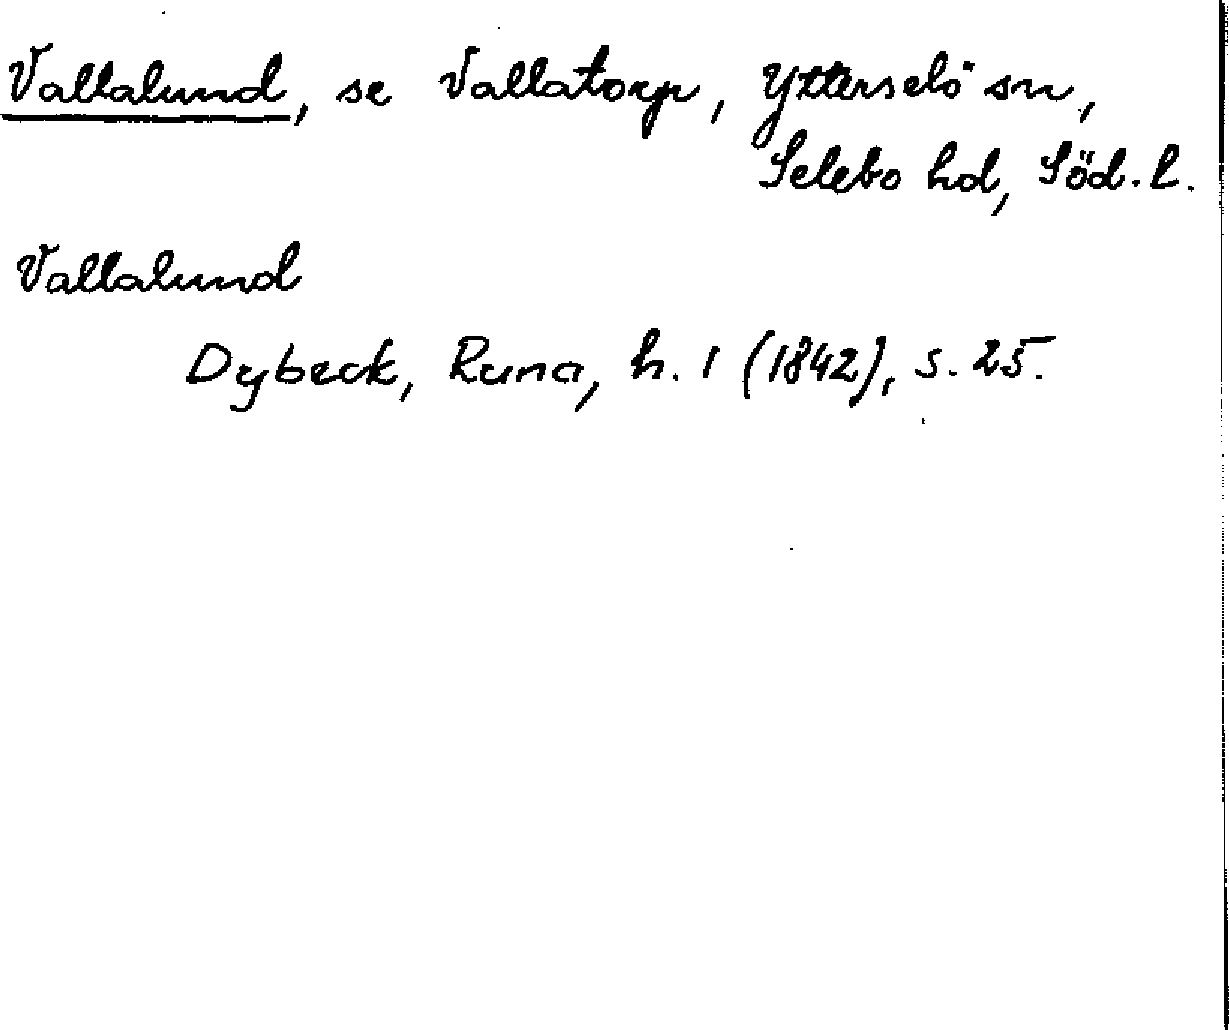 Vallalund, se Vallatorp, Ytterselö sn,
Selebo hd, Söd. l.
Vallalund
Dybeck, Runa, h. 1 (1842), s. 25.